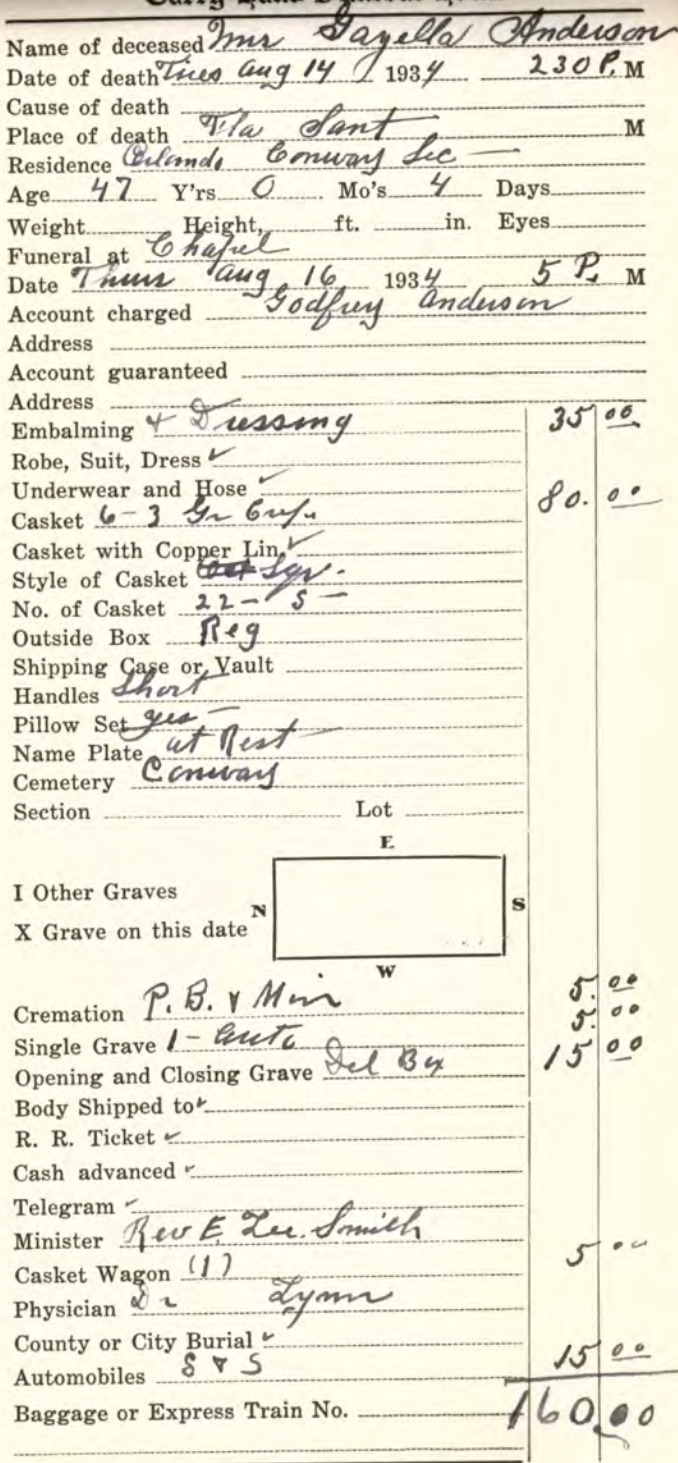 Name of deceased Mrs Gazella Anderson
Date of death Tues Aug 14 1934 230 P. M
Cause of death
Place of death Fla Sant M
Residence Orlando Conway Sec
Age 47 Y'rs 0 Mo's 4 Days
Weight Height, ft. in. Eyes
Funeral at Chapel
Date Thurs Aug 16 1934 5 P. M
Account charged Godfrey Anderson
Address
Account guaranteed
Address
Embalming & Dressing 35 00
Robe, Suit, Dress ✓
Underwear and Hose ✓
Casket 6-3 Gr 80. 00
Casket with Copper Lin ✓
Style of Casket Sqr.
No. of Casket 22- S
Outside Box Reg
Shipping Case or Vault
Handles Short
Pillow Set yes
Name Plate at Rest
Cemetery Conway
Section Lot
E
I Other Graves
N S
X Grave on this date
W
Cremation P. B. & Min 5. 00
Single Grave 1- Auto 5. 00
Opening and Closing Grave Del Box 15 00
Body Shipped to ✓
R. R. Ticket ✓
Cash advanced ✓
Telegram ✓
Minister Rev E Lee Smith
Casket Wagon (1) 5 00
Physician Dr Lynn
County or City Burial ✓
Automobiles S & S 15 00
Baggage or Express Train No. 160.00